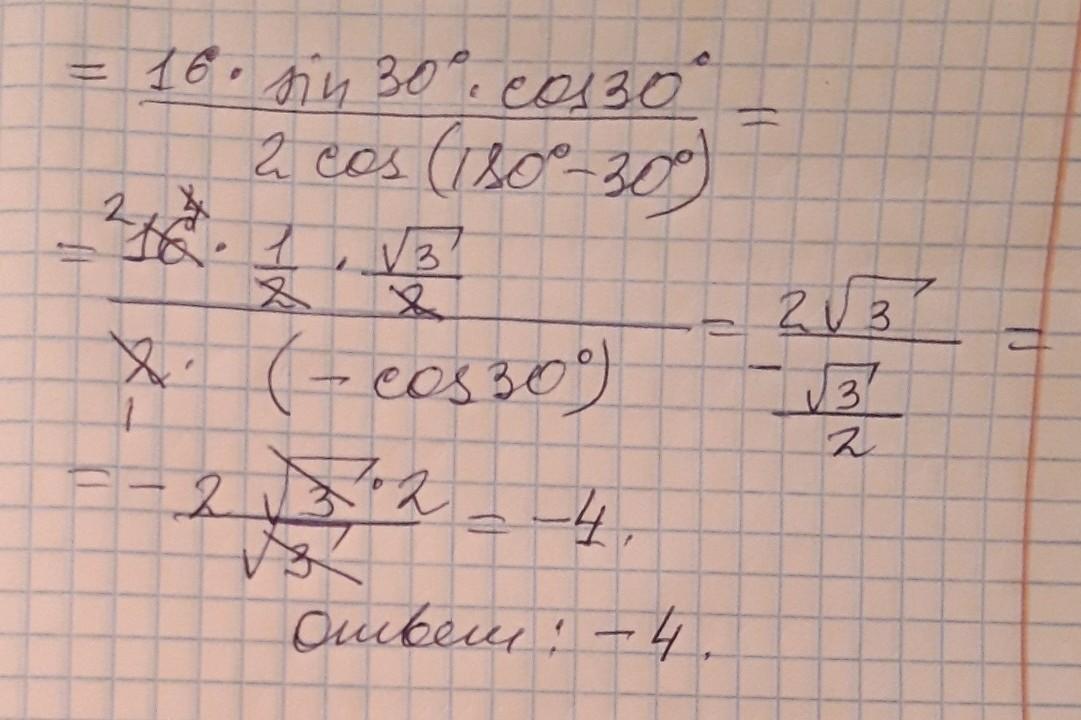 = 16 · sin 30° · cos 30° / 2 cos (180° - 30°) =
= 16 · 1/2 · √3/2 / 2 · (- cos 30°) = 2√3 / - √3/2 =
= - 2√3 · 2 / √3 = -4.
Ответ: -4.